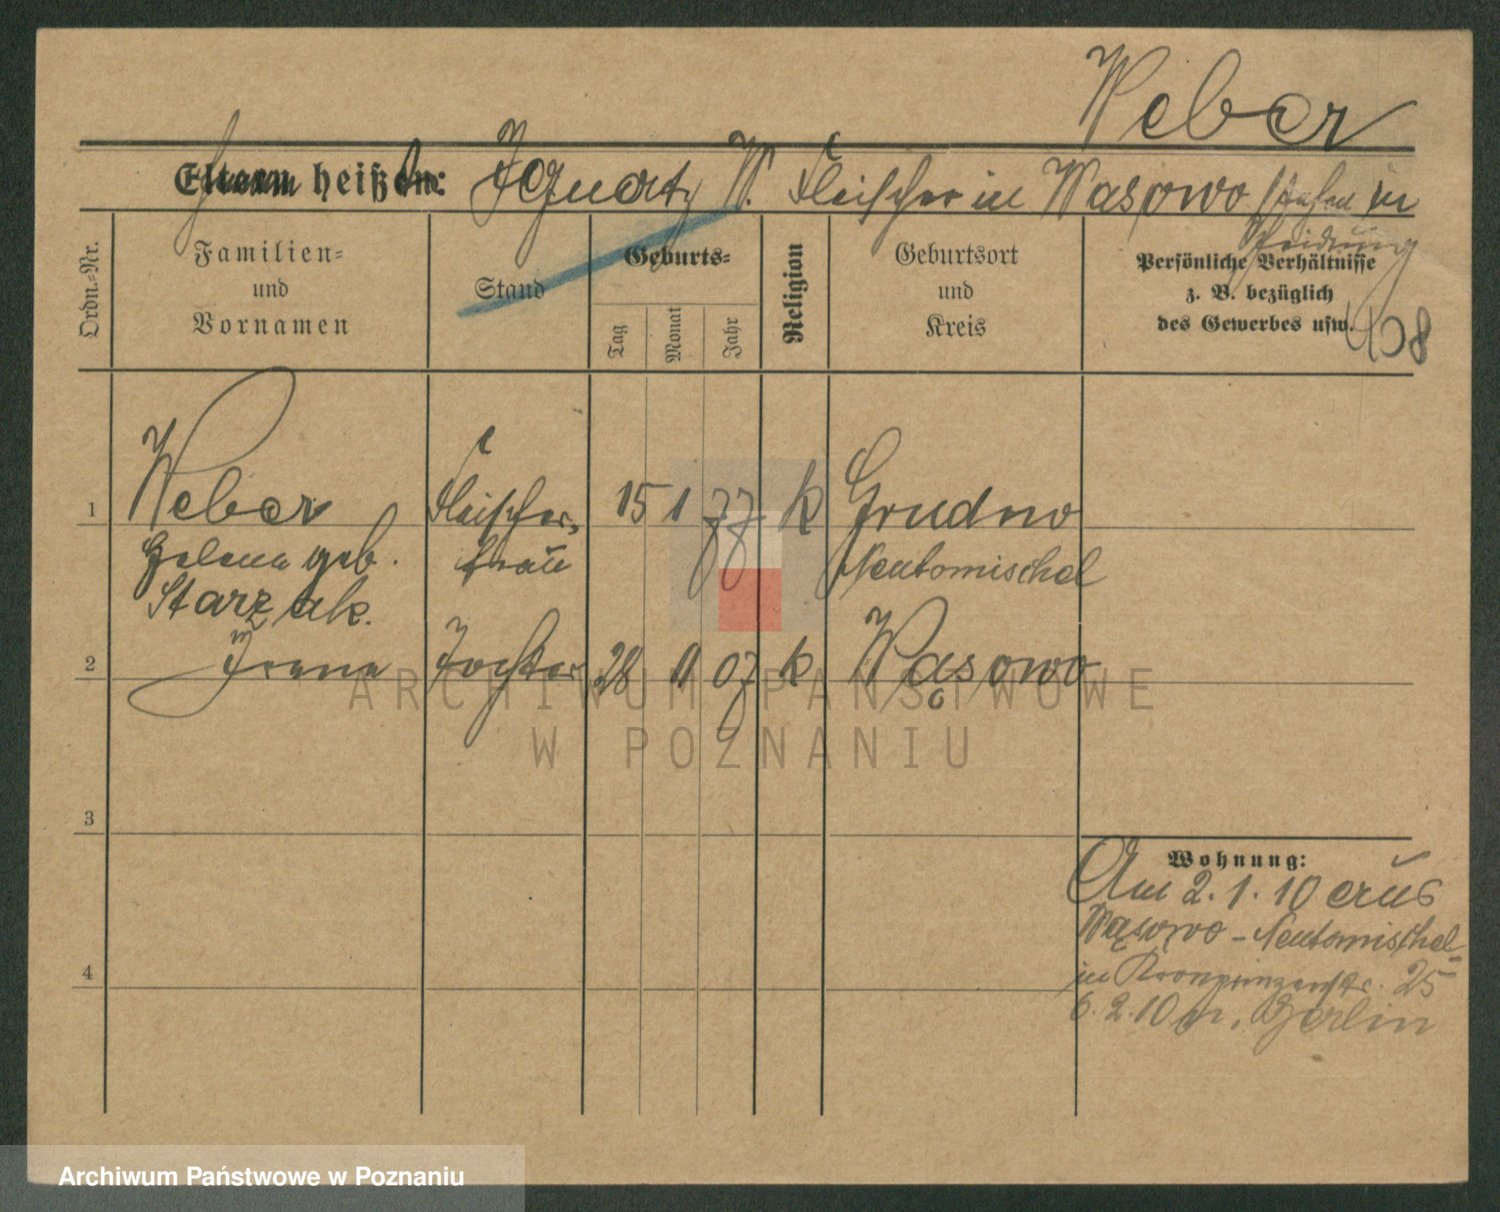 Weber
Eltern heißen: Ignatz W. Fleischer in Wasowo stehen in
Scheidung
Ordn.-Nr.
Familien-
und
Vornamen
Stand
Geburts-
Tag
Monat
Jahr
Religion
Geburtsort
und
Kreis
Persönliche Verhältnisse
z. B. bezüglich
des Gewerbes usw.
408
1 Weber Fleischer- 15 1 77 k Grudno
Helena geb. frau Neutomischel
Starzak.
2 Irena Tochter 28 11 07 k Wąsowo
3
4
Wohnung:
Am 2. 1. 10 aus
Wąsowo - Neutomischel
in Kronprinzenstr. 25
6. 2. 10 n. Berlin
ARCHIWUM PAŃSTWOWE
W POZNANIU
Archiwum Państwowe w Poznaniu